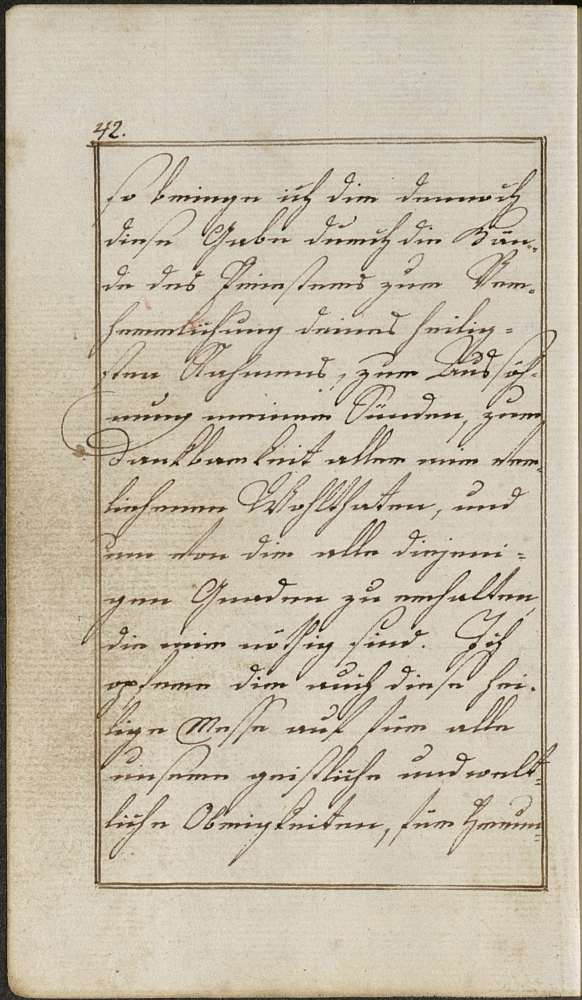 42.
so bringe ich dir dennoch
diese Gabe durch die Hän-
de des Priesters zur Ver-
herrlichung deines heilig-
sten Nahmens, zur Aussöh-
nung meiner Sünden, zur
Dankbarkeit aller mir ver-
liehenen Wohlthaten, und
um von dir alle diejeni-
gen Gnaden zu erhalten,
die mir nöthig sind. Ich
opfere dir auch diese hei-
lige Messe auf für alle
unsere geistliche und welt-
liche Obrigkeiten, für Freun-